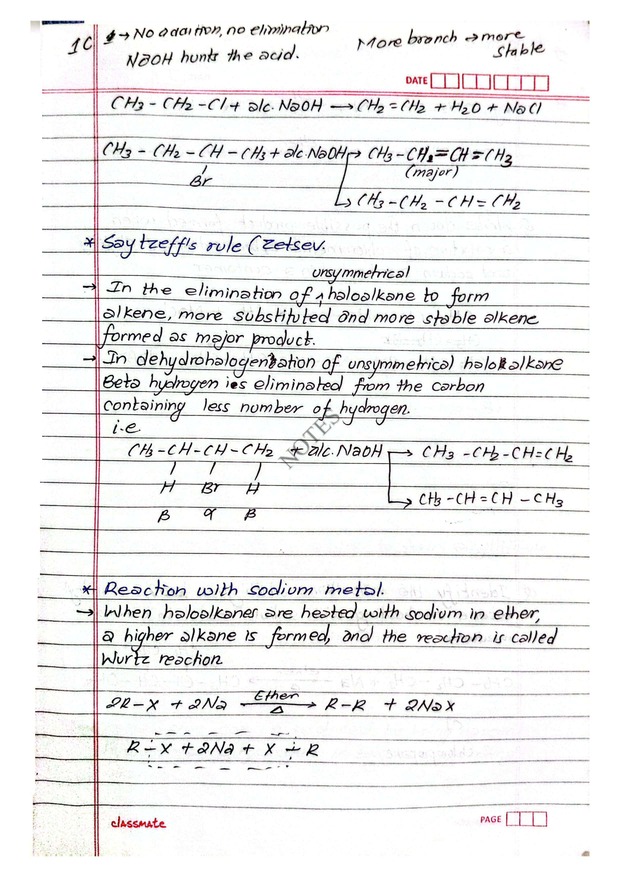 1C → No addition, no elimination
NaOH hunts the acid.
More branch → more
stable
DATE
CH3 - CH2 - Cl + alc. NaOH → CH2 = CH2 + H2O + NaCl
CH3 - CH2 - CH - CH3 + alc. NaOH → CH3 - CH2 = CH = CH3
(major)
Br
→ CH3 - CH2 - CH = CH2
* Saytzeff's rule (Zetsev.
unsymmetrical
→ In the elimination of ^ haloalkane to form
alkene, more substituted and more stable alkene
formed as major product.
→ In dehydrohalogenation of unsymmetrical haloalkane
Beta hydrogen is eliminated from the carbon
containing less number of hydrogen.
i.e.
CH3 - CH - CH - CH2 + alc. NaOH → CH3 - CH2 - CH = CH2
H Br H
→ CH3 - CH = CH - CH3
β α β
NOTES
* Reaction with sodium metal.
→ When haloalkanes are heated with sodium in ether,
a higher alkane is formed, and the reaction is called
Wurtz reaction
2R - X + 2Na Ether → R - R + 2NaX
Δ
R - X + 2Na + X - R
classmate
PAGE